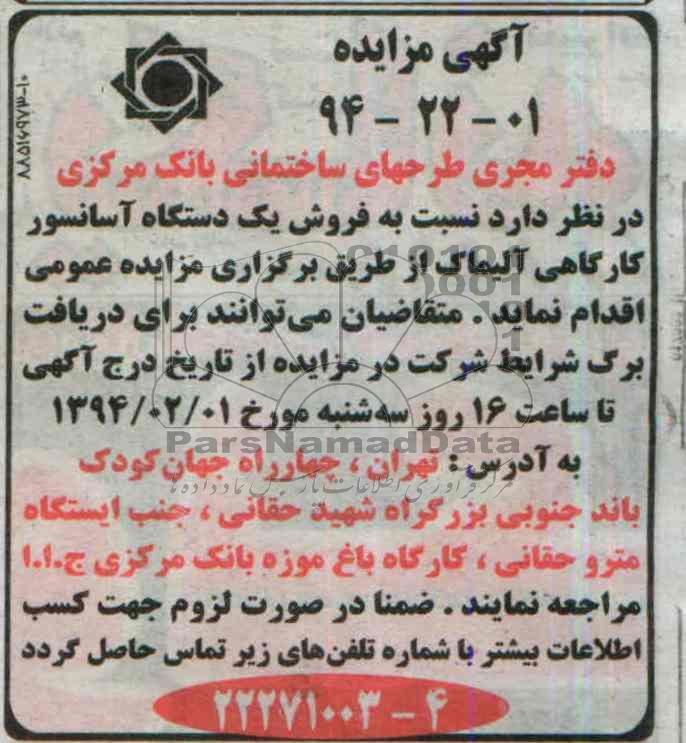 آگهی مزایده
۹۴ - ۲۲ - ۰۱
دفتر مجری طرحهای ساختمانی بانک مرکزی
در نظر دارد نسبت به فروش یک دستگاه آسانسور
کارگاهی آلیماک از طریق برگزاری مزایده عمومی
اقدام نماید . متقاضیان می‌توانند برای دریافت
برگ شرایط شرکت در مزایده از تاریخ درج آگهی
تا ساعت ۱۶ روز سه‌شنبه مورخ ۱۳۹۴/۰۲/۰۱
ParsNamadData
به آدرس : تهران ، چهارراه جهان کودک
مرکز فرآوری اطلاعات پارس نماد داده ها
باند جنوبی بزرگراه شهید حقانی ، جنب ایستگاه
مترو حقانی ، کارگاه باغ موزه بانک مرکزی ج.ا.ا
مراجعه نمایند . ضمنا در صورت لزوم جهت کسب
اطلاعات بیشتر با شماره تلفن‌های زیر تماس حاصل گردد
۲۲۲۷۱۰۰۳ - ۴
۸۸۵۱۶۹۷۳-۱۰